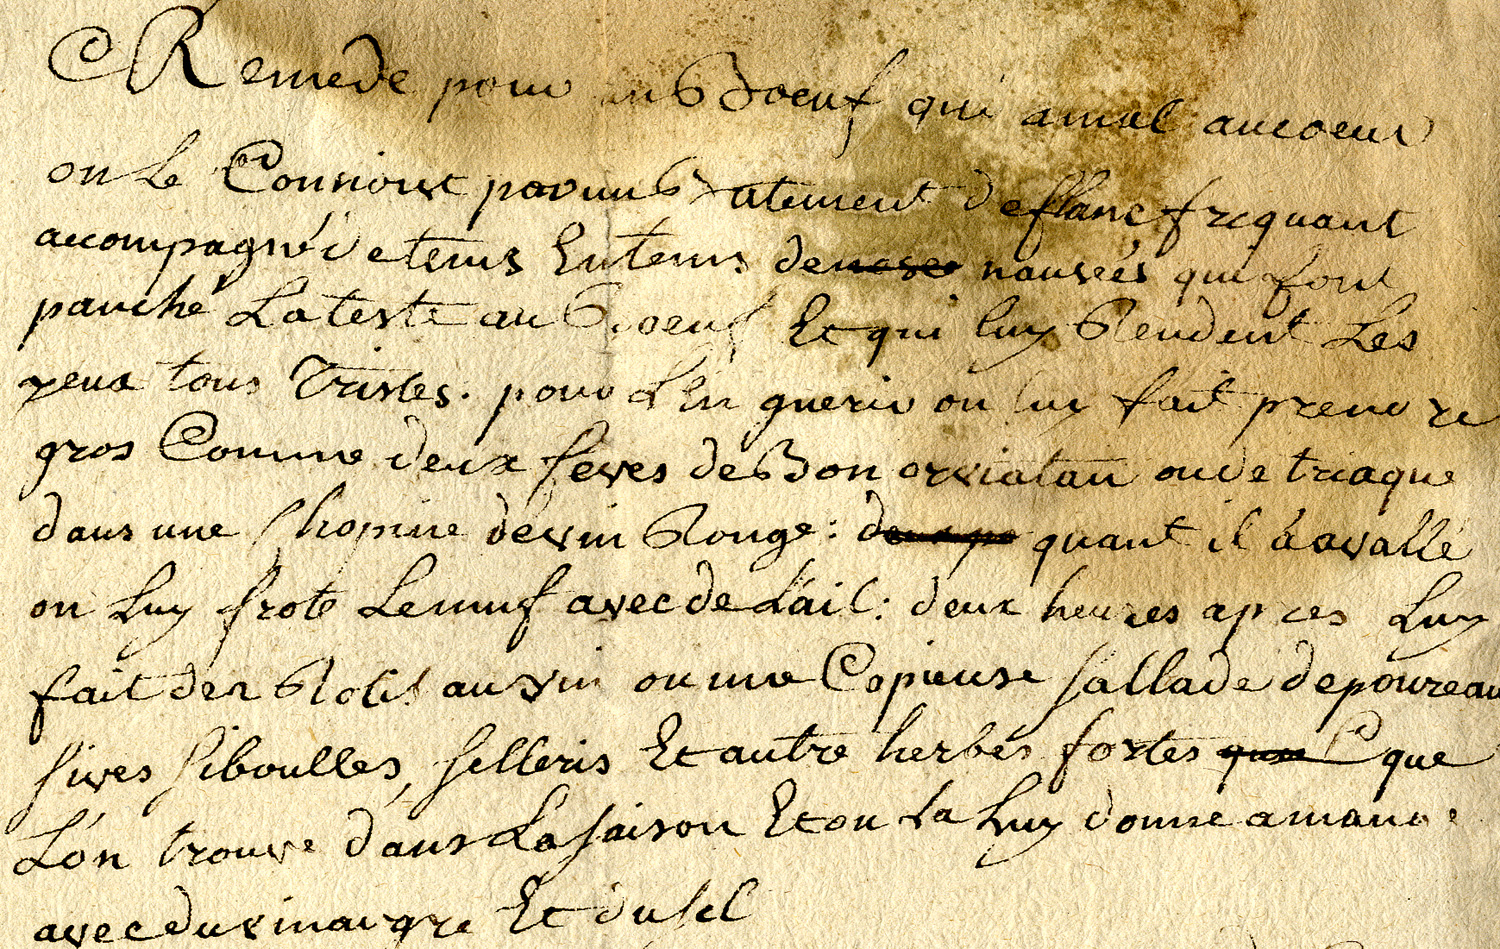 Remede pour un Boeuf qui amal aucoeur
on le Connoist par un Batement deflanc frequant
accompagné detems Entems de <del>nosee</del> nausées qui font
panché Lateste au Boeuf Et qui luy Rendent Les
yeux tous Tristes. pour L'En guerir on luy fait prendre
gros Comme deux feves de Bon orviatan oude triaque
dans une Chopine devin Rouge: quant il a avallé
on Luy frote Lemuf avec de L'ail: deux heures apres Luy
fait des Rotis auvin ou une Copieuse sallade depoureau
sives siboulles, selleris Et autre herbes fortes que
L'ón trouve dans La saison Et on La Luy donne amange
avec du vinaigre Et du sel